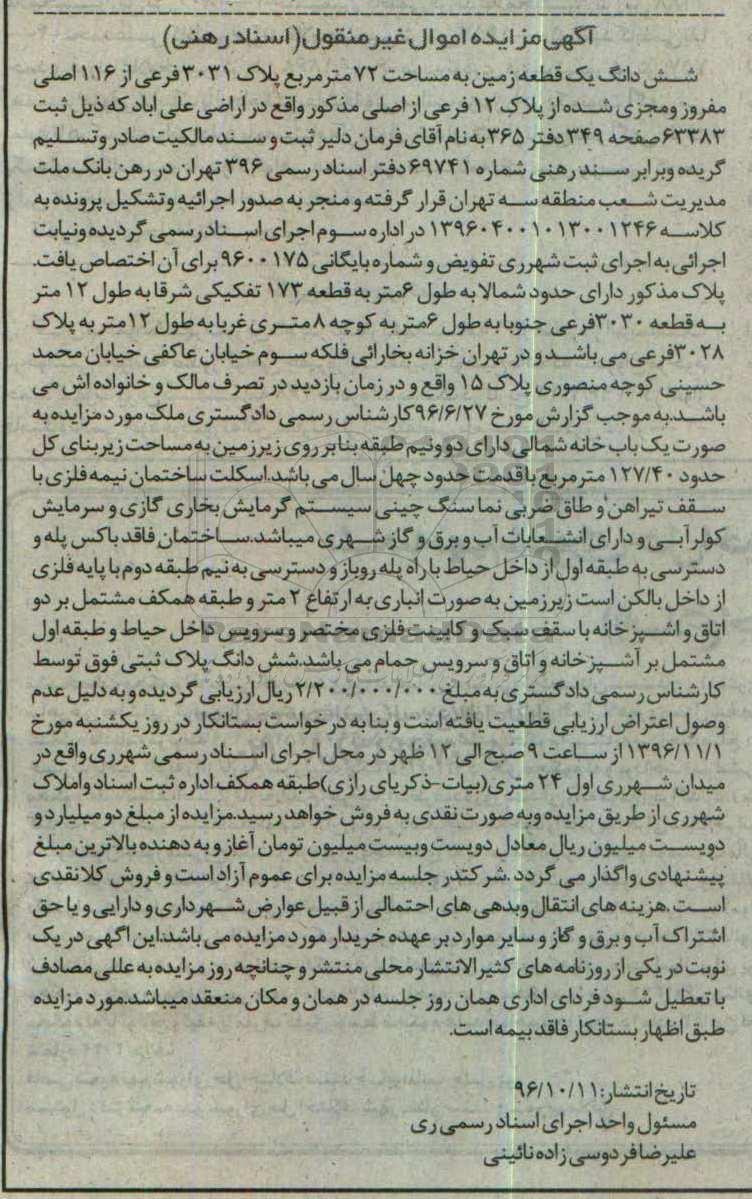 آگهی مزایده اموال غیر منقول(اسناد رهنی)
شش دانگ یک قطعه زمین به مساحت ۷۲ مترمربع پلاک ۳۰۳۱ فرعی از ۱۱۶ اصلی
مفروز ومجزی شده از پلاک ۱۲ فرعی از اصلی مذکور واقع در اراضی علی اباد که ذیل ثبت
۶۳۳۸۳ صفحه ۳۴۹ دفتر ۳۶۵ به نام آقای فرمان دلیر ثبت و سند مالکیت صادر وتسلیم
گریده وبرابر سند رهنی شماره ۶۹۷۴۱ دفتر اسناد رسمی ۳۹۶ تهران در رهن بانک ملت
مدیریت شعب منطقه سه تهران قرار گرفته و منجر به صدور اجرائیه وتشکیل پرونده به
کلاسه ۱۳۹۶۰۴۰۰۱۰۱۳۰۰۱۲۴۶ در اداره سوم اجرای اسناد رسمی گردیده ونیابت
اجرائی به اجرای ثبت شهرری تفویض و شماره بایگانی ۹۶۰۰۱۷۵ برای آن اختصاص یافت.
پلاک مذکور دارای حدود شمالا به طول ۶متر به قطعه ۱۷۳ تفکیکی شرقا به طول ۱۲ متر
به قطعه ۳۰۳۰فرعی جنوبا به طول ۶متر به کوچه ۸ متری غربا به طول ۱۲متر به پلاک
۳۰۲۸فرعی می باشد و در تهران خزانه بخارائی فلکه سوم خیابان عاکفی خیابان محمد
حسینی کوچه منصوری پلاک ۱۵ واقع و در زمان بازدید در تصرف مالک و خانواده اش می
باشد.به موجب گزارش مورخ ۹۶/۶/۲۷کارشناس رسمی دادگستری ملک مورد مزایده به
صورت یک باب خانه شمالی دارای دو ونیم طبقه بنا بر روی زیرزمین به مساحت زیربنای کل
حدود ۱۲۷/۴۰ مترمربع با قدمت حدود چهل سال می باشد.اسکلت ساختمان نیمه فلزی با
سقف تیراهن و طاق ضربی نما سنگ چینی سیستم گرمایش بخاری گازی و سرمایش
کولر آبی و دارای انشعابات آب و برق و گاز شهری میباشد.ساختمان فاقد باکس پله و
دسترسی به طبقه اول از داخل حیاط با راه پله روباز و دسترسی به نیم طبقه دوم با پایه فلزی
از داخل بالکن است زیرزمین به صورت انباری به ارتفاع ۲ متر و طبقه همکف مشتمل بر دو
اتاق و اشپزخانه با سقف سبک و کابینت فلزی مختصر و سرویس داخل حیاط و طبقه اول
مشتمل بر آشپزخانه و اتاق و سرویس حمام می باشد.شش دانگ پلاک ثبتی فوق توسط
کارشناس رسمی دادگستری به مبلغ ۲/۲۰۰/۰۰۰/۰۰۰ ریال ارزیابی گردیده و به دلیل عدم
وصول اعتراض ارزیابی قطعیت یافته است و بنا به درخواست بستانکار در روز یکشنبه مورخ
۱۳۹۶/۱۱/۱ از ساعت ۹ صبح الی ۱۲ ظهر در محل اجرای اسناد رسمی شهرری واقع در
میدان شهرری اول ۲۴ متری(بیات-ذکریای رازی)طبقه همکف اداره ثبت اسناد واملاک
شهرری از طریق مزایده وبه صورت نقدی به فروش خواهد رسید.مزایده از مبلغ دو میلیارد و
دویست میلیون ریال معادل دویست وبیست میلیون تومان آغاز و به دهنده بالاترین مبلغ
پیشنهادی واگذار می گردد .شرکتدر جلسه مزایده برای عموم آزاد است و فروش کلا نقدی
است .هزینه های انتقال وبدهی های احتمالی از قبیل عوارض شهرداری و دارایی و یا حق
اشتراک آب و برق و گاز و سایر موارد بر عهده خریدار مورد مزایده می باشد.این اگهی در یک
نوبت در یکی از روزنامه های کثیرالانتشار محلی منتشر و چنانچه روز مزایده به عللی مصادف
با تعطیل شود فردای اداری همان روز جلسه در همان و مکان منعقد میباشد.مورد مزایده
طبق اظهار بستانکار فاقد بیمه است.
تاریخ انتشار:۹۶/۱۰/۱۱
مسئول واحد اجرای اسناد رسمی ری
علیرضا فردوسی زاده نائینی